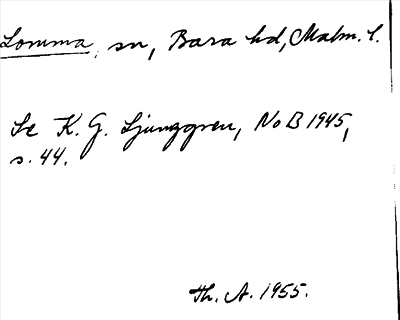 Lomma, sn, Bara hd, Malm. l.
Se K. G. Ljunggren, NoB 1945,
s. 44.
Th. A. 1955.